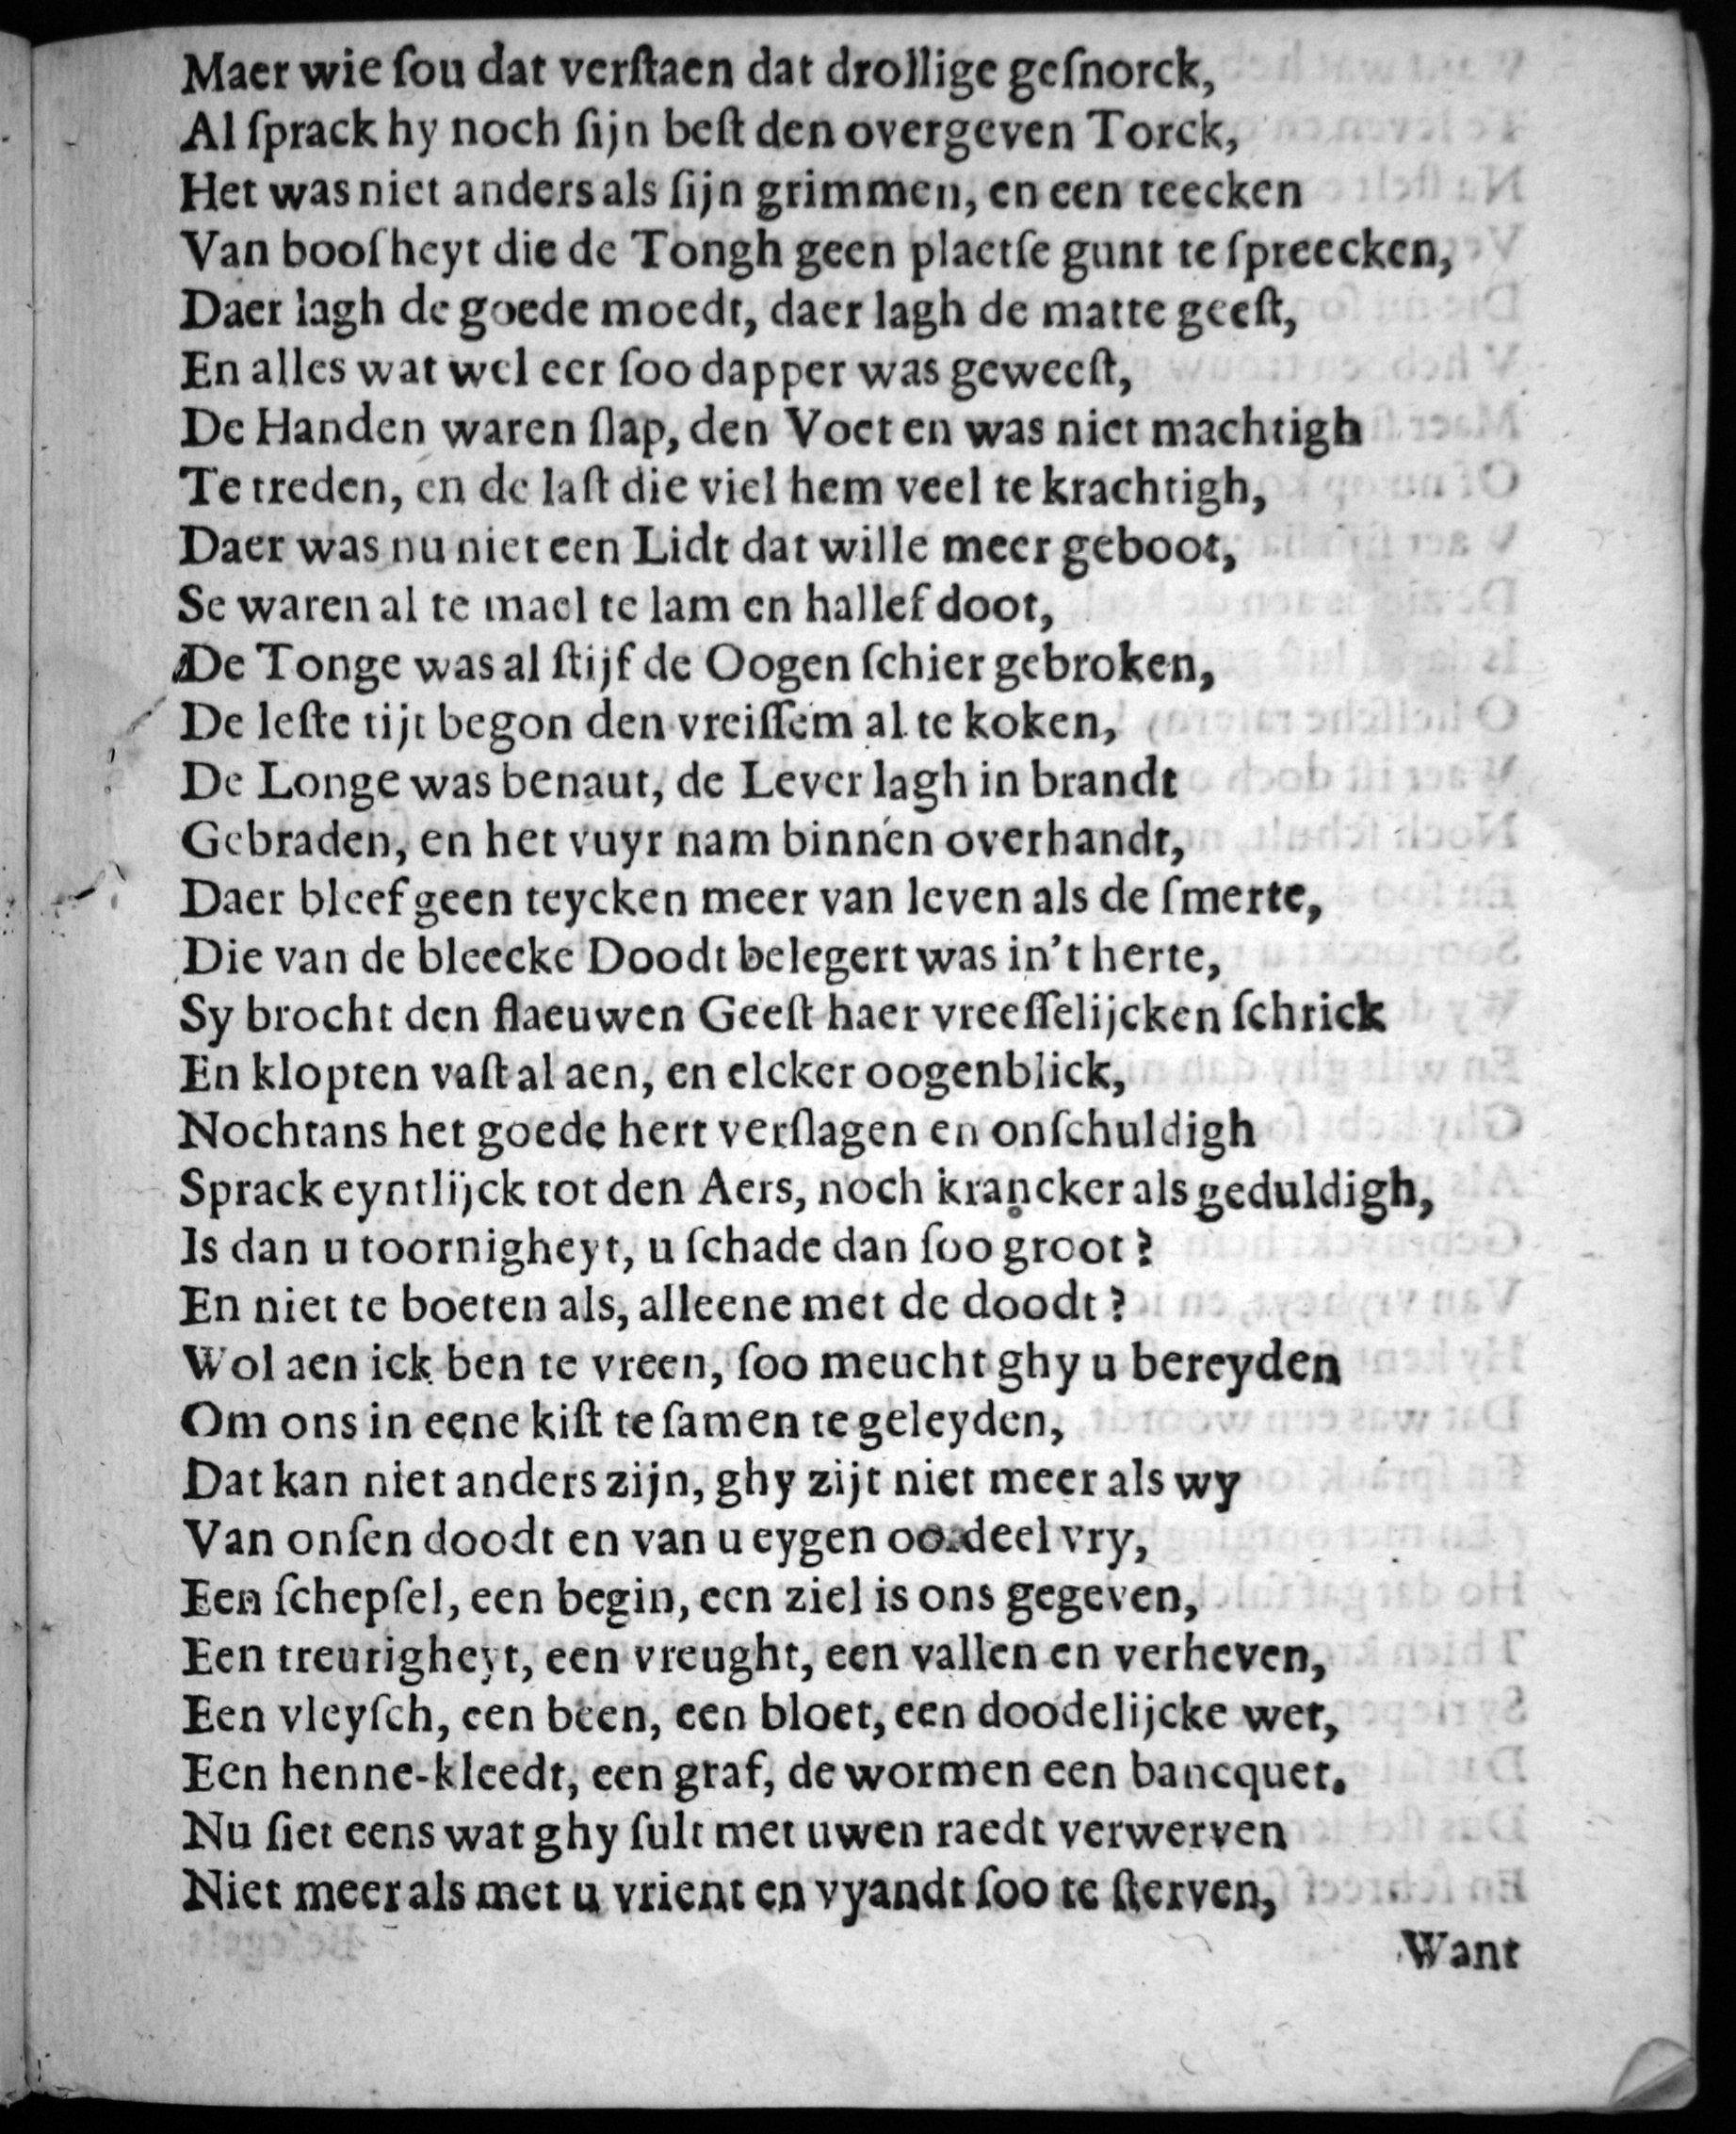 Maer wie ſou dat verſtaen dat drollige geſnorck,
Al ſprack hy noch ſijn beſt den overgeven Torck,
Het was niet anders als ſijn grimmen, en een teecken
Van booſheyt die de Tongh geen plaetſe gunt te ſpreecken,
Daer lagh de goede moedt, daer lagh de matte geeſt,
En alles wat wel eer ſoo dapper was geweeſt,
De Handen waren ſlap, den Voet en was niet machtigh
Te treden, en de laſt die viel hem veel te krachtigh,
Daer was nu niet een Lidt dat wille meer geboot,
Se waren al te mael te lam en hallef doot,
De Tonge was al ſtijf de Oogen ſchier gebroken,
De leſte tijt begon den vreiſſem al te koken,
De Longe was benaut, de Lever lagh in brandt
Gebraden, en het vuyr nam binnen overhandt,
Daer bleef geen teycken meer van leven als de ſmerte,
Die van de bleecke Doodt belegert was in't herte,
Sy brocht den flaeuwen Geeſt haer vreeſſelijcken ſchrick
En klopten vaſt al aen, en elcker oogenblick,
Nochtans het goede hert verſlagen en onſchuldigh
Sprack eyntlijck tot den Aers, noch krancker als geduldigh,
Is dan u toornigheyt, u ſchade dan ſoo groot?
En niet te boeten als, alleene met de doodt?
Wol aen ick ben te vreen, ſoo meucht ghy u bereyden
Om ons in eene kiſt te ſamen te geleyden,
Dat kan niet anders zijn, ghy zijt niet meer als wy
Van onſen doodt en van u eygen oordeel vry,
Een ſchepſel, een begin, een ziel is ons gegeven,
Een treurigheyt, een vreught, een vallen en verheven,
Een vleyſch, een been, een bloet, een doodelijcke wet,
Een henne-kleedt, een graf, de wormen een bancquet.
Nu ſiet eens wat ghy ſult met uwen raedt verwerven
Niet meer als met u vrient en vyandt ſoo te ſterven,
Want